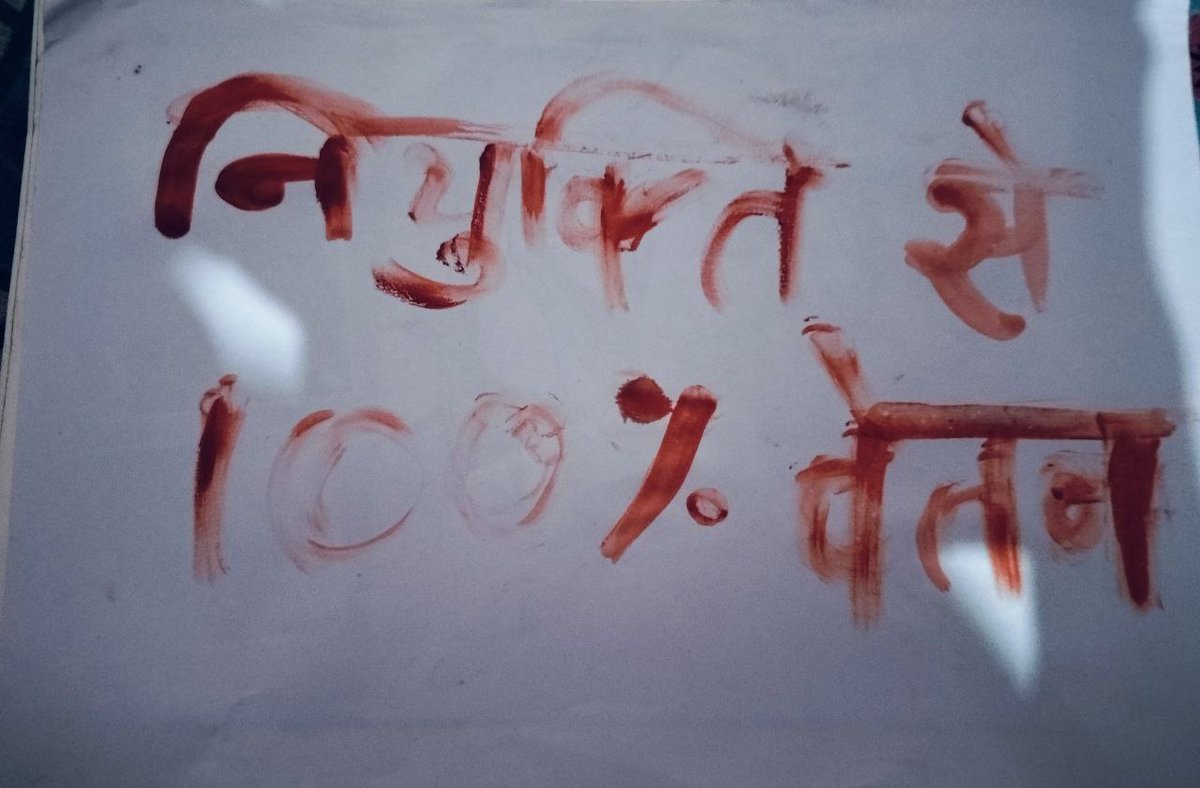 नियुक्ति से
100% वेतन